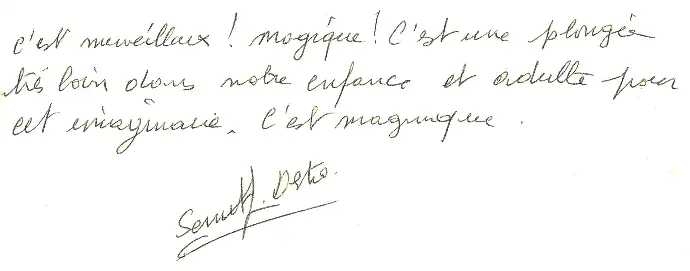 c'est merveilleux ! magique ! C'est une plongée
très loin dans notre enfance et adulte pour
cet imaginaire. C'est magnifique.